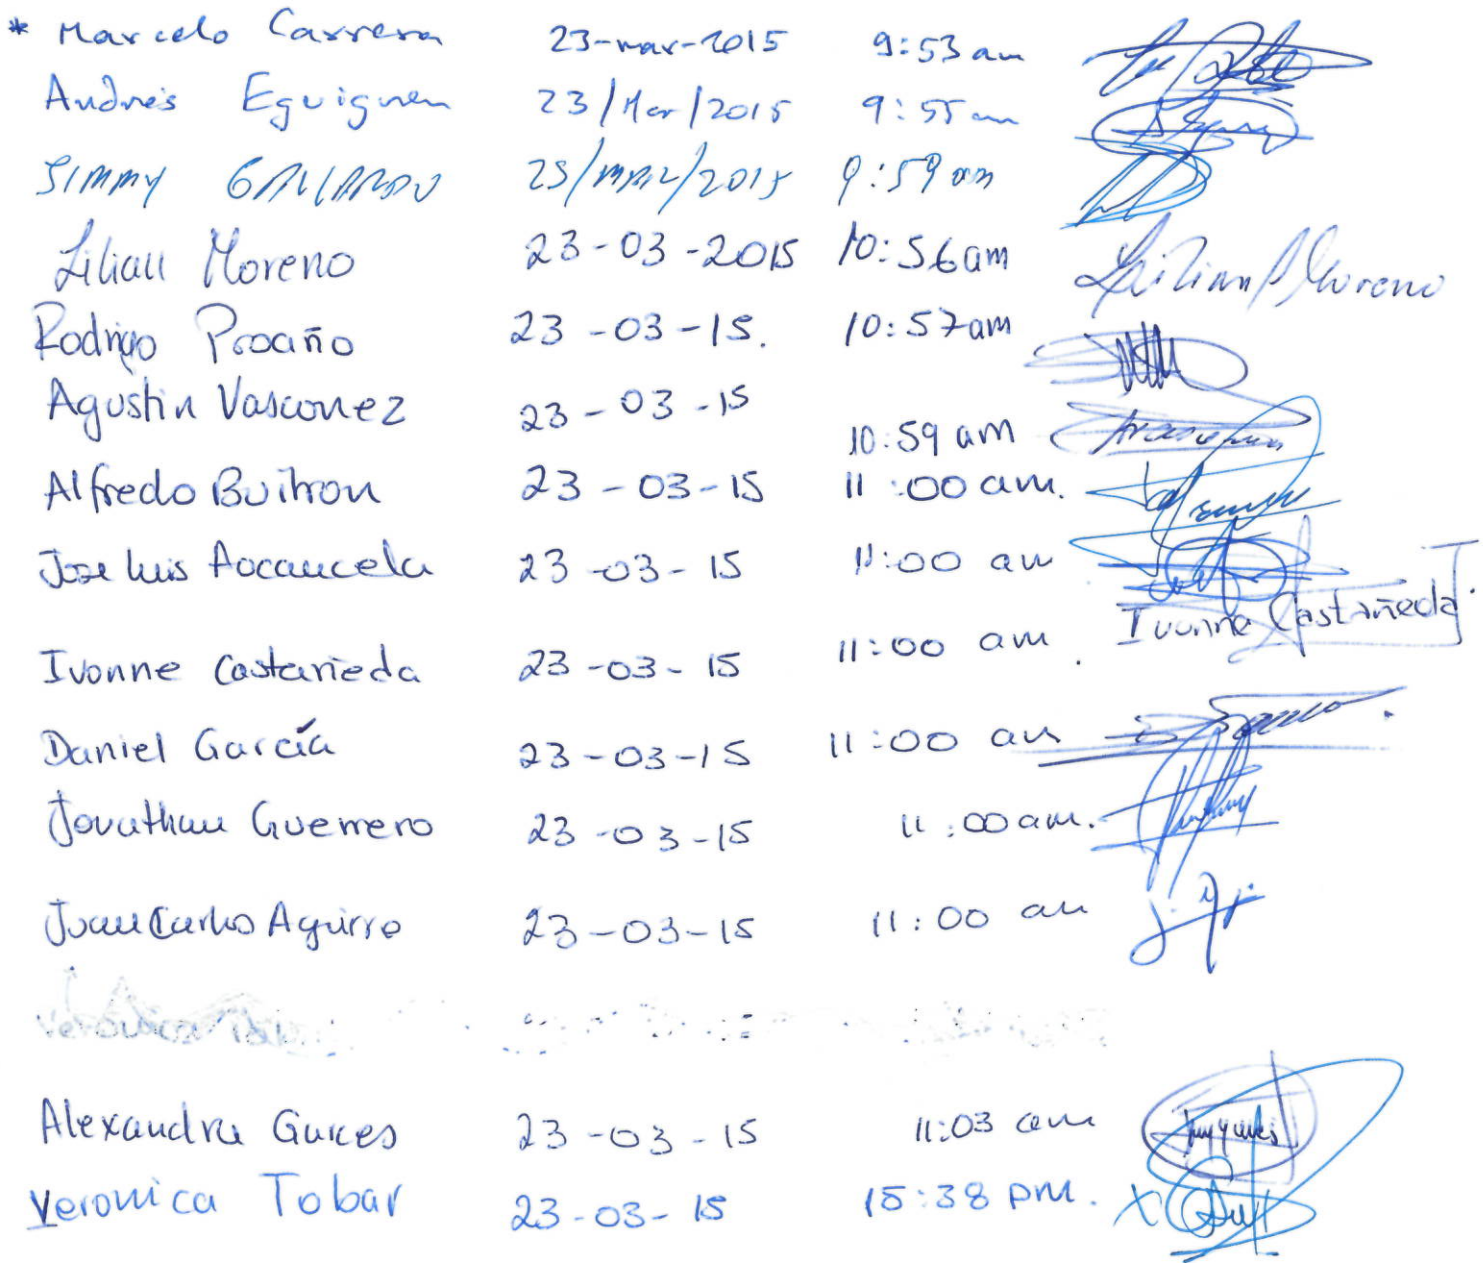 * Marcelo Carrera 23-mar-2015 9:53 am
Andrés Eguiguren 23/Mar/2015 9:55 am
JIMMY GALLARDO 23/MAR/2015 9:59 am
Lilian Moreno 23-03-2015 10:56am Lilian Moreno
Rodrigo Proaño 23-03-15. 10:57am
Agustin Vasconez 23-03-15 10:59 am
Alfredo Buitron 23-03-15 11:00 am.
Jose Luis 23-03-15 11:00 am
Ivonne Castañeda 23-03-15 11:00 am. Ivonne Castañeda
Daniel García 23-03-15 11:00 am
Jonathan Guerrero 23-03-15 11:00am.
Juan Carlos Aguirre 23-03-15 11:00 am
Veronica
Alexandra Garces 23-03-15 11:03 am
Veronica Tobar 23-03-15 15:38 pm. X